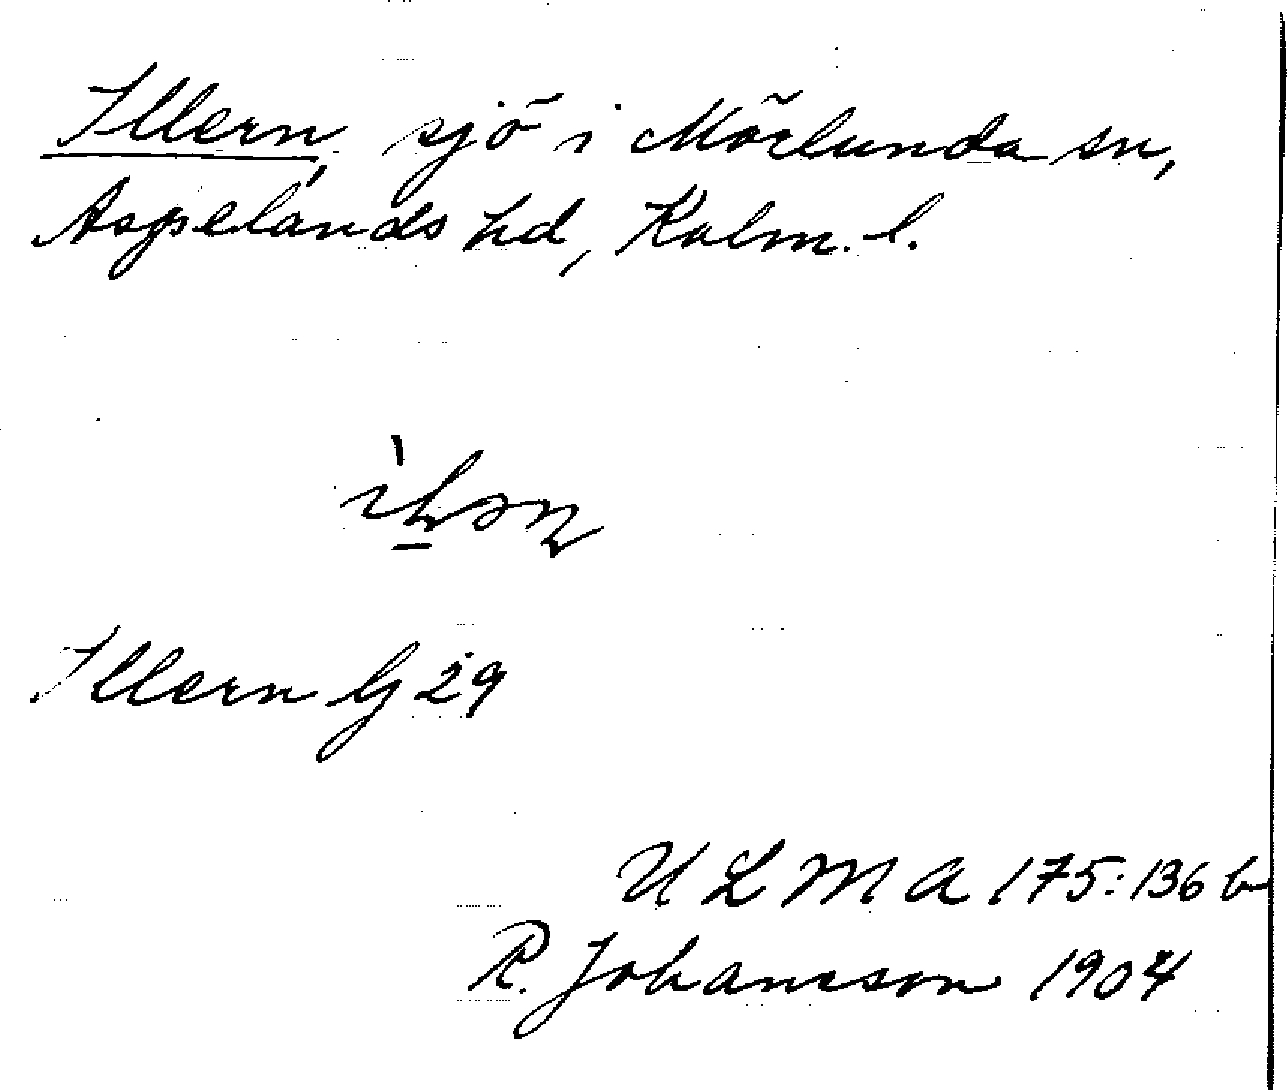 Illern, sjö i Mörlunda sn,
Aspelands hd, Kalm. l.
Illern G 29
U L M A 175:136 b
R. Johansson 1904